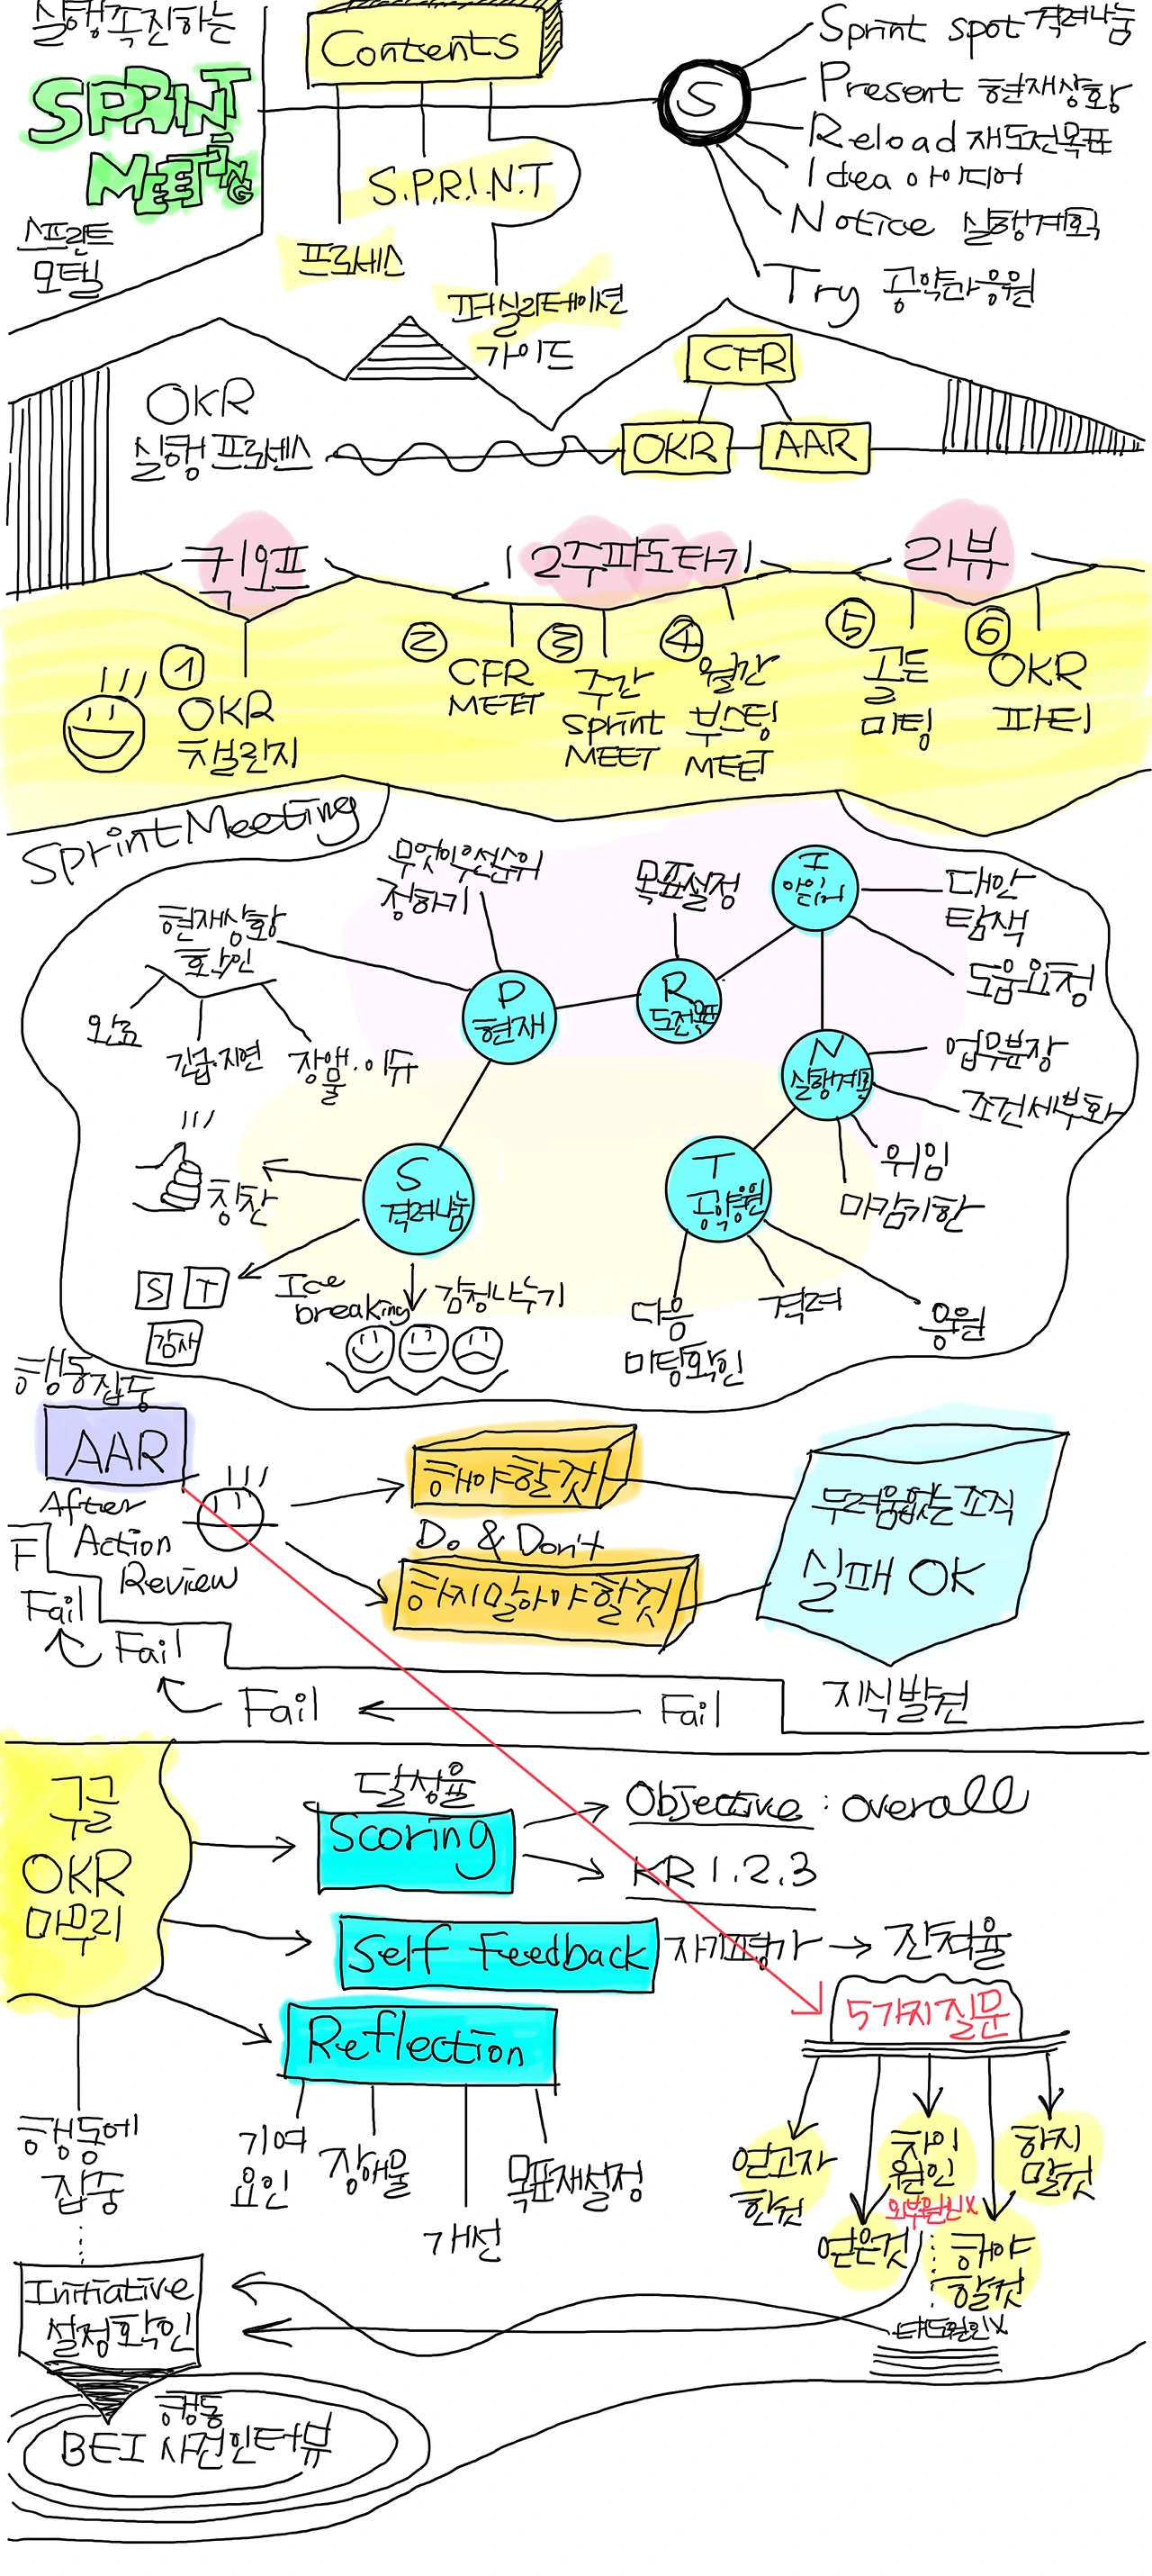 실행촉진하는
SPRINT
MEETING
스프린트
모델
Contents
S.P.R.I.N.T
프로세스
퍼실리테이션
가이드
S
Sprint spot 격려나눔
Present 현재상황
Reload 재도전목표
Idea 아이디어
Notice 실행계획
Try 공약과응원
OKR
실행프로세스
CFR
OKR
AAR
킥오프
12주파도타기
리뷰
①
OKR
챌린지
②
CFR
MEET
③
주간
Sprint
MEET
④
월간
부스팅
MEET
⑤
골든
미팅
⑥
OKR
파티
Sprint Meeting
무엇이우선순위
정하기
현재상황
확인
완료
긴급·지연
장애물·이슈
P
현재
목표설정
R
도전목표
I
아이디어
대안
탐색
도움요청
N
실행계획
업무분장
조건세부화
위임
마감기한
S
격려나눔
칭찬
S T
감사
Ice
breaking
감정나누기
T
공약응원
다음
미팅확인
격려
응원
행동집중
AAR
After
Action
Review
해야할것
Do & Don't
하지말아야할것
두려움없는조직
실패 OK
지식발견
F
Fail
Fail
Fail
Fail
구글
OKR
마무리
달성율
Scoring
Objective : overall
KR 1.2.3
Self Feedback
자기평가 → 진척율
Reflection
기여
요인
장애물
개선
목표재설정
5가지질문
얻고자
한것
얻은것
차이
원인
외부원인X
해야
할것
하지
말것
태도원인X
행동에
집중
Initiative
설정확인
행동
BEI 사건인터뷰